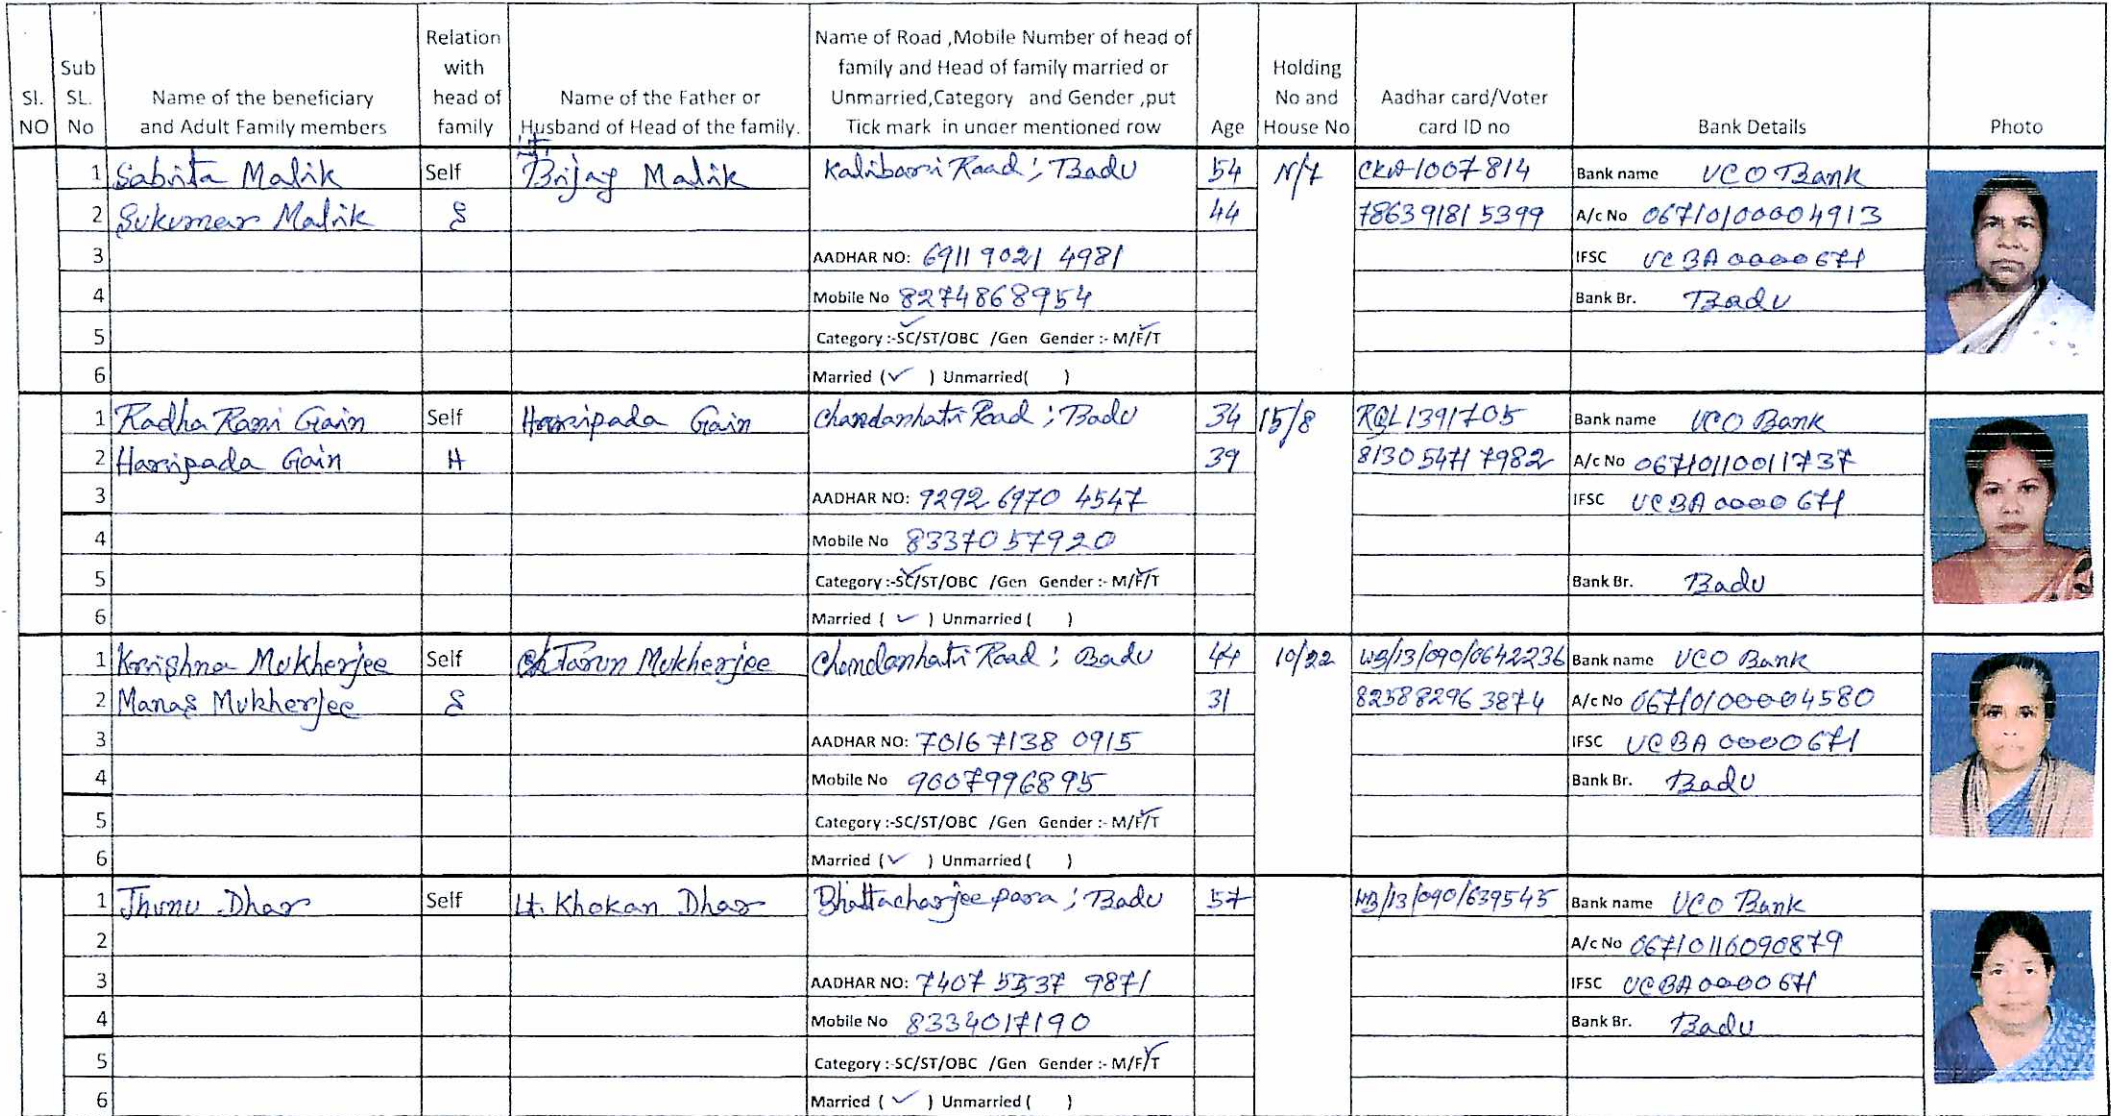 Sl. NO
Sub SL. No
Name of the beneficiary and Adult Family members
Relation with head of family
Name of the Father or Husband of Head of the family.
Name of Road ,Mobile Number of head of family and Head of family married or Unmarried,Category and Gender ,put Tick mark in under mentioned row
Age
Holding No and House No
Aadhar card/Voter card ID no
Bank Details
Photo
1 Sabita Malik Self Lt. Brijay Malik Kalibari Road ; Badu 54 N/7 CKW1007814 Bank name UCO Bank
2 Sukumar Malik S 44 786391815399 A/c No 06710100004913
3 AADHAR NO: 6911 9021 4981 IFSC UCBA0000671
4 Mobile No 8274868954 Bank Br. Badu
5 Category :-SC/ST/OBC /Gen Gender :- M/F/T
6 Married (✓ ) Unmarried( )
1 Radha Rani Gain Self Haripada Gain Chandanhati Road ; Badu 34 15/8 RQL1391705 Bank name UCO Bank
2 Haripada Gain H 39 8130 5471 7982 A/c No 06710110011737
3 AADHAR NO: 9292 6970 4547 IFSC UCBA0000671
4 Mobile No 8337057920
5 Category :-SC/ST/OBC /Gen Gender :- M/F/T Bank Br. Badu
6 Married ( ✓ ) Unmarried ( )
1 Krishna Mukherjee Self Tarun Mukherjee Chandanhati Road ; Badu 44 10/22 WB/13/090/0642236 Bank name UCO Bank
2 Manas Mukherjee S 31 82588296 3874 A/c No 06710100004580
3 AADHAR NO: 7016 7138 0915 IFSC UCBA0000671
4 Mobile No 9007996895 Bank Br. Badu
5 Category :-SC/ST/OBC /Gen Gender :- M/F/T
6 Married (✓ ) Unmarried ( )
1 Jhunu Dhar Self Lt. Khokan Dhar Bhattacharjee para ; Badu 57 WB/13/090/639545 Bank name UCO Bank
2 A/c No 06710116090879
3 AADHAR NO: 7407 5537 9871 IFSC UCBA0000671
4 Mobile No 8334017190 Bank Br. Badu
5 Category :-SC/ST/OBC /Gen Gender :- M/F/T
6 Married ( ✓ ) Unmarried ( )